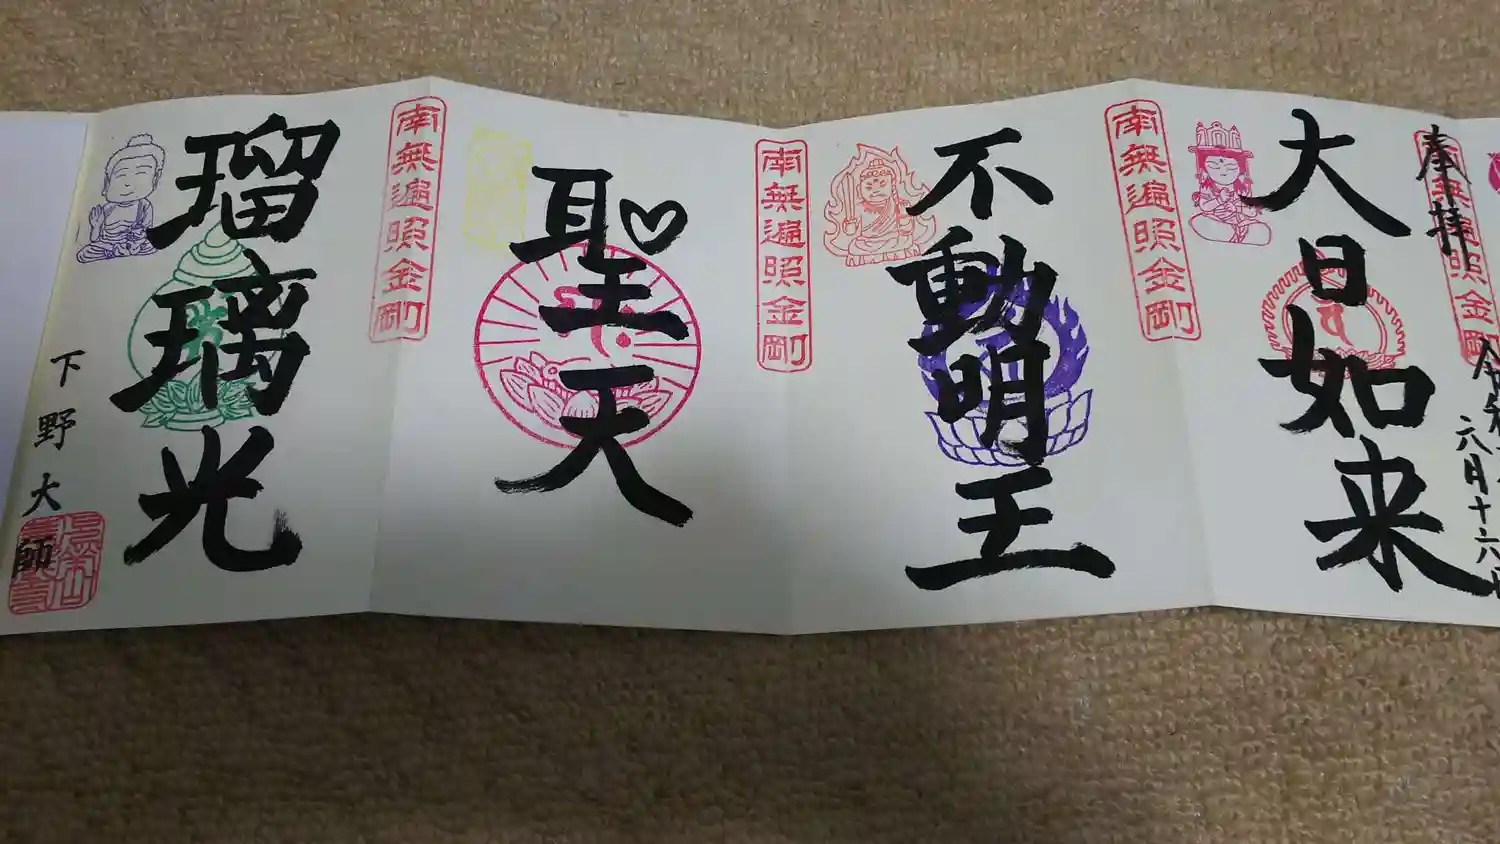 奉拝
南無遍照金剛
六月十六日
大日如来
南無遍照金剛
不動明王
南無遍照金剛
聖天
南無遍照金剛
瑠璃光
下野大師